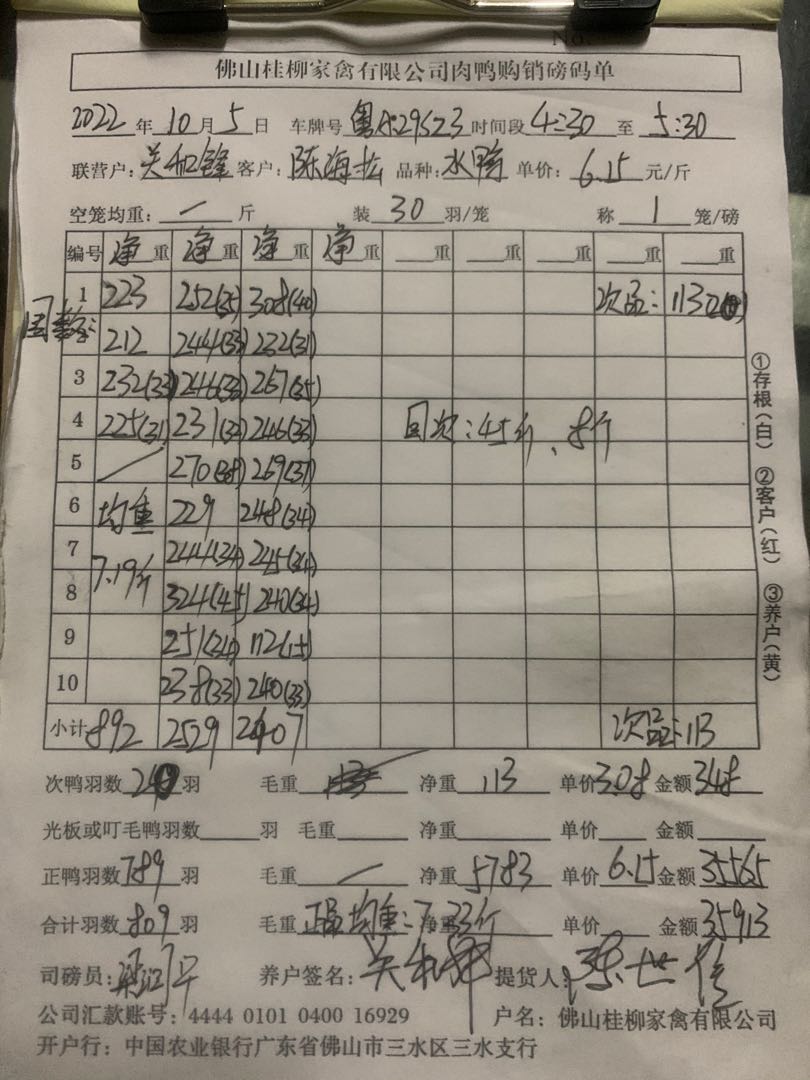 No.
佛山桂柳家禽有限公司肉鸭购销磅码单
2022年10月5日 车牌号 粤A·29523 时间段 4:30 至 5:30
联营户: 关 锋 客户: 陈海 品种: 水鸭 单价: 6.15 元/斤
空笼均重: 一 斤 装 30 羽/笼 称 1 笼/磅
编号 净重 净重 净重 净重 重 重 重 重 重
1 223 252(35) 308(40) 次品: 113
212 244(33) 232(31)
3 232(33) 246(33) 267(35)
4 225(31) 231(32) 246(33) 回次:45斤、8斤
5 270(38) 269(37)
6 均重 229 248(34)
7 7.19斤 244(34) 245(34)
8 324(45) 240(34)
9 251(34) 112(15)
10 238(33) 240(33)
小计 892 2529 2407 次品:113
次鸭羽数 20 羽 毛重 净重 113 单价 3.08 金额 348
光板或叮毛鸭羽数 羽 毛重 净重 单价 金额
正鸭羽数 789 羽 毛重 净重 5783 单价 6.15 金额 35565
合计羽数 809 羽 毛重 正品均重:7.33斤 单价 金额 35913
司磅员: 养户签名: 关 提货人: 陈世
公司汇款账号: 4444 0101 0400 16929 户名: 佛山桂柳家禽有限公司
开户行: 中国农业银行广东省佛山市三水区三水支行
①存根(白) ②客户(红) ③养户(黄)